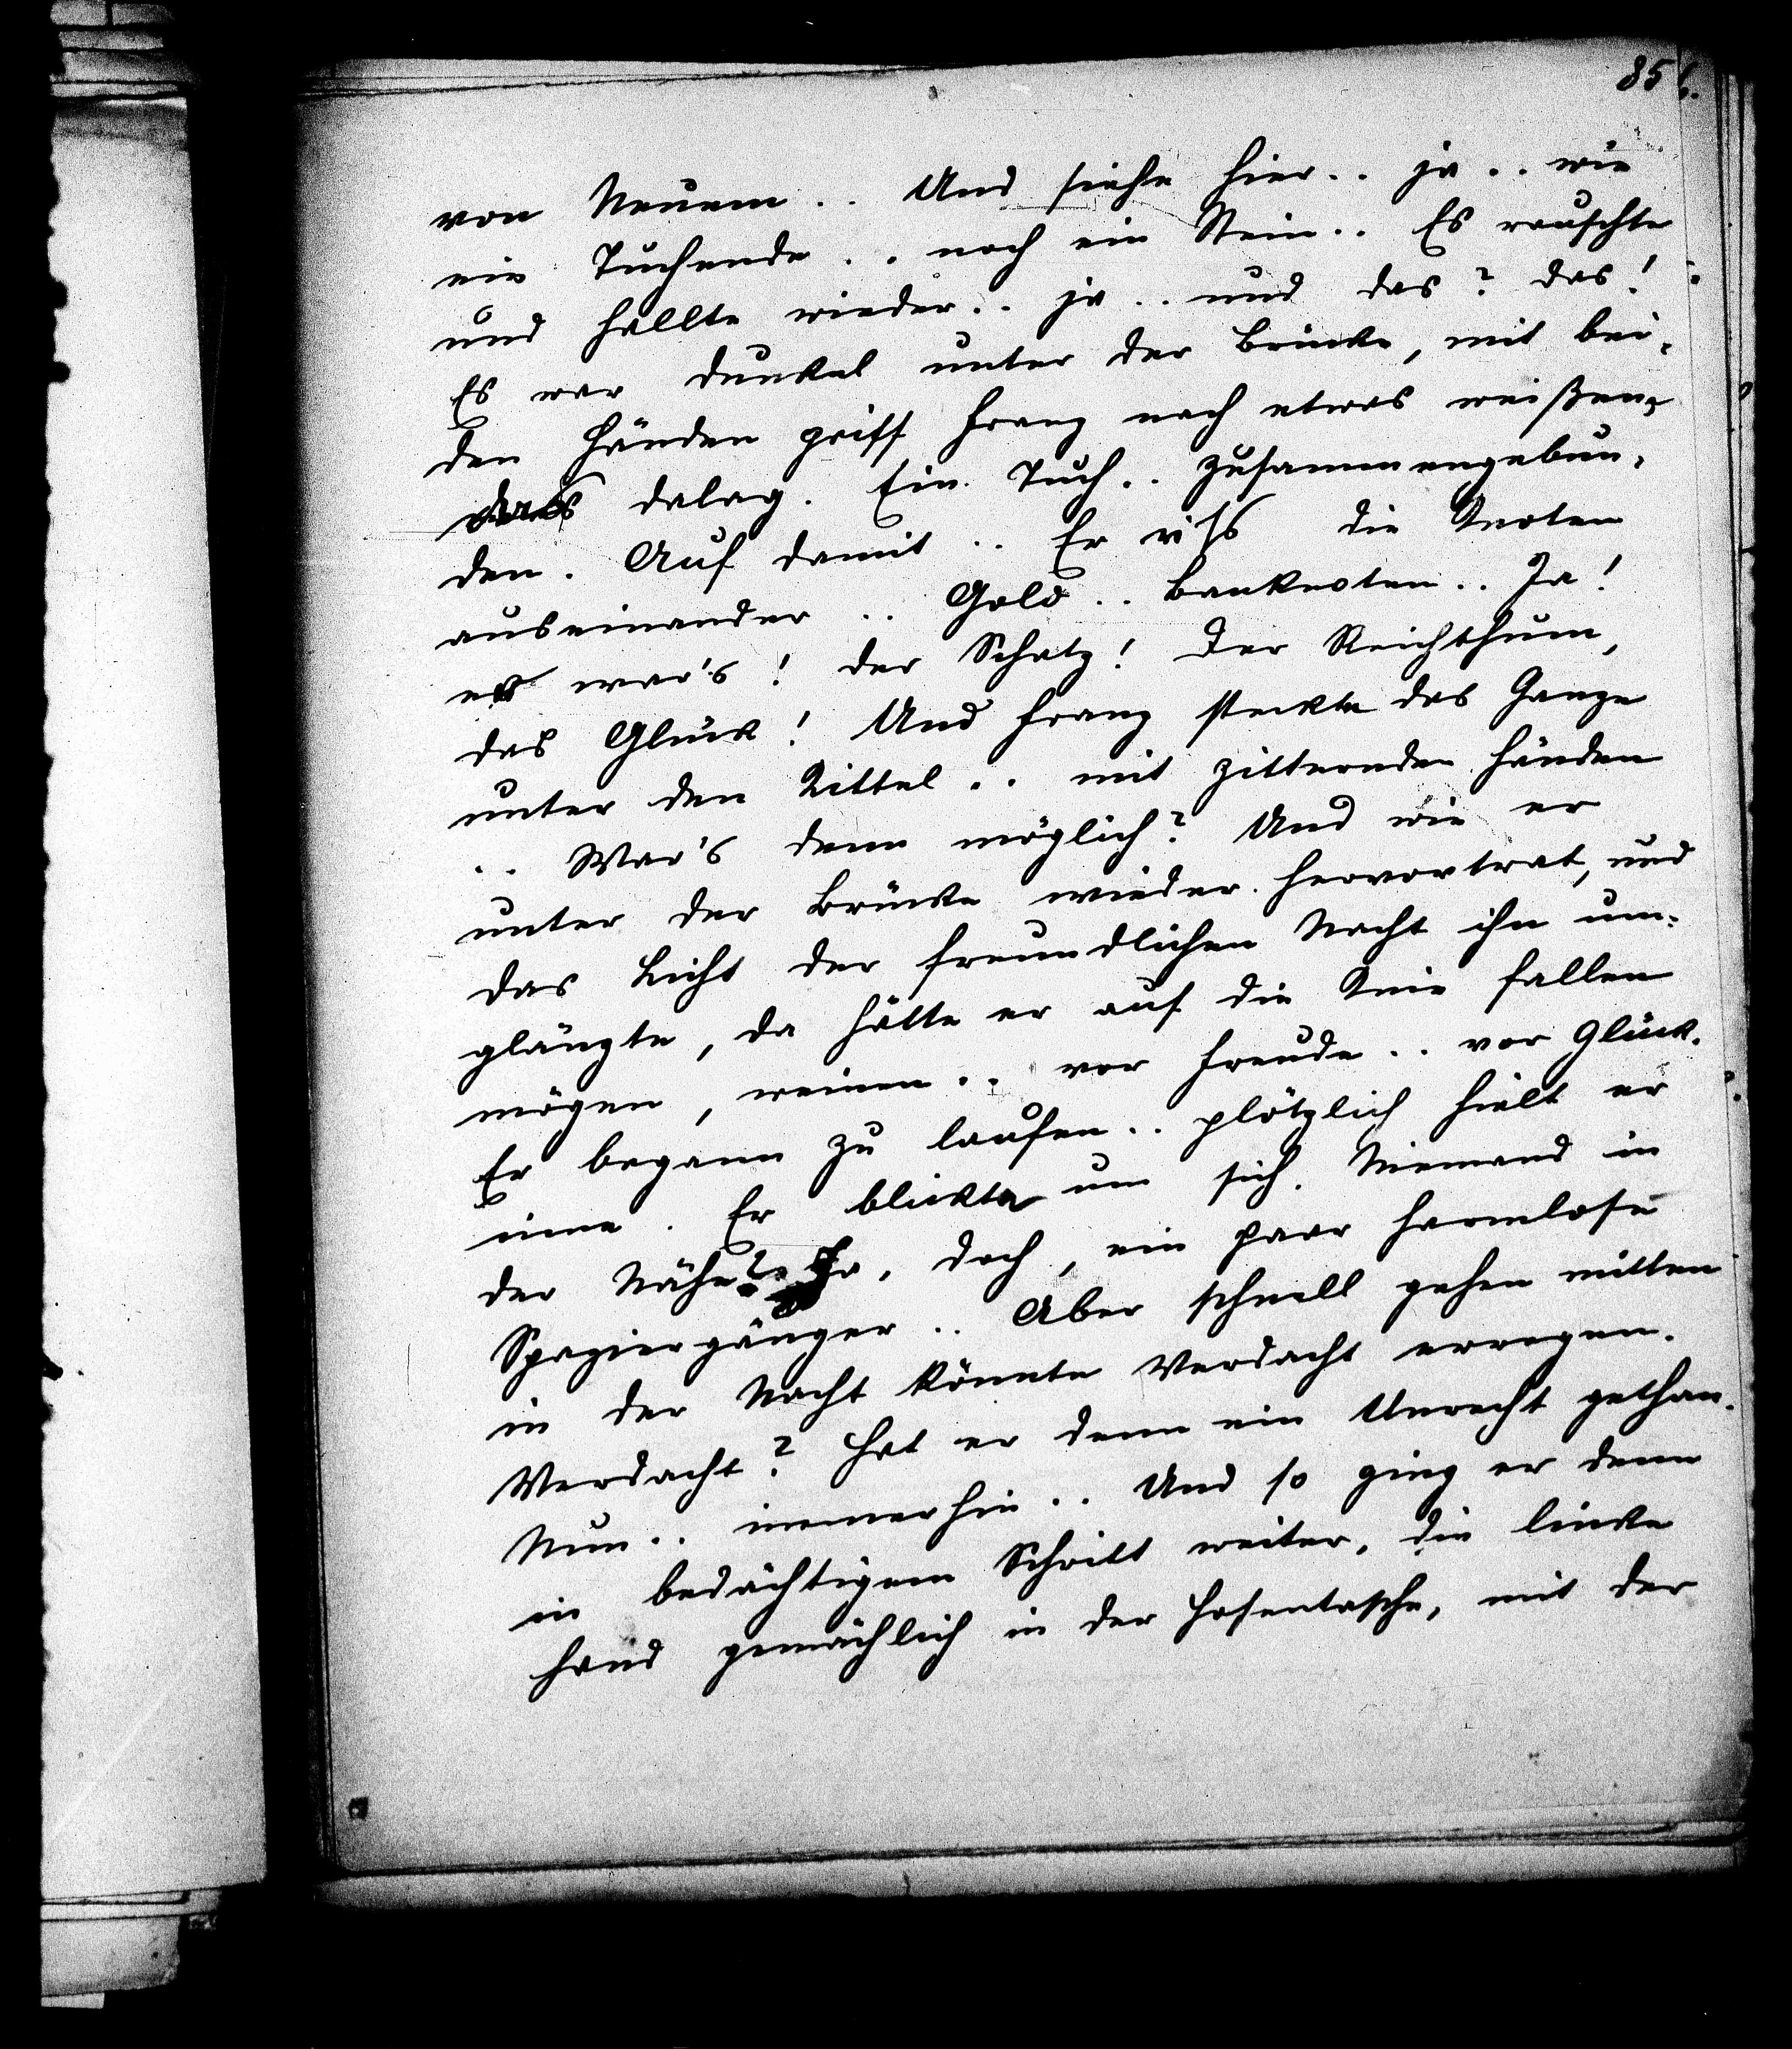 85
von Neuem .. Und siehe hier .. ja .. wie
ein Tuchende .. noch ein Stein .. Es rauschte
und hallte wieder .. ja .. und das? das!
Es war dunkel unter der Brücke, mit bei-
den Händen griff Franz nach etwas weißen,
das dalag. Ein Tuch .. zusammengebun-
den. Auf damit .. Er riss die Knoten
auseinander .. Gold .. Banknoten .. Ja!
er war's! der Schatz! Der Reichthum,
das Glück! Und Franz steckte das Ganze
unter den Kittel .. mit zitternden Händen
.. War's denn möglich? Und wie er
unter der Brücke wieder hervortrat, und
das Licht der freundlichen Nacht ihn um-
glänzte, da hätte er auf die Knie fallen
mögen, weinen .. vor Freude .. vor Glück.
Er begann zu laufen .. plötzlich hielt er
inne. Er blickte um sich. Niemand in
der Nähe? Ja, doch, ein paar harmlose
Spaziergänger .. Aber schnell gehen mitten
in der Nacht könnte Verdacht erregen.
Verdacht? Hat er denn ein Unrecht gethan.
Nun .. immerhin .. Und so ging er denn
in bedächtigem Schritt weiter, die linke
Hand gemächlich in der Hosentasche, mit der